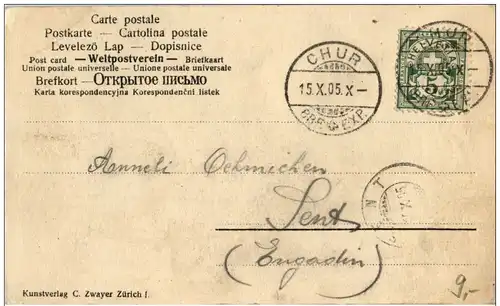 Carte postale
Postkarte — Cartolina postale
Levelező Lap — Dopisnice
Post card —Weltpostverein— Briefkaart
Union postale universelle — Unione postale universale
Brefkort —Открытое письмо
Karta korespondencyjna Korespondenční listek
CHUR
15.X.05.X—
EXP.
CHUR
HELVETIA
5
Anneli Oehmichen
SENT
Sent
(Engadin)
9,-
Kunstverlag C. Zwayer Zürich I.